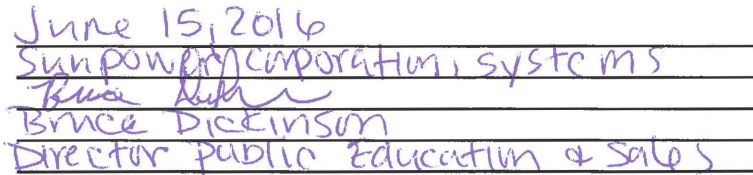 June 15, 2016
Sunpower Corporation, Systems
Bruce
Bruce Dickinson
Director Public Education & Sales